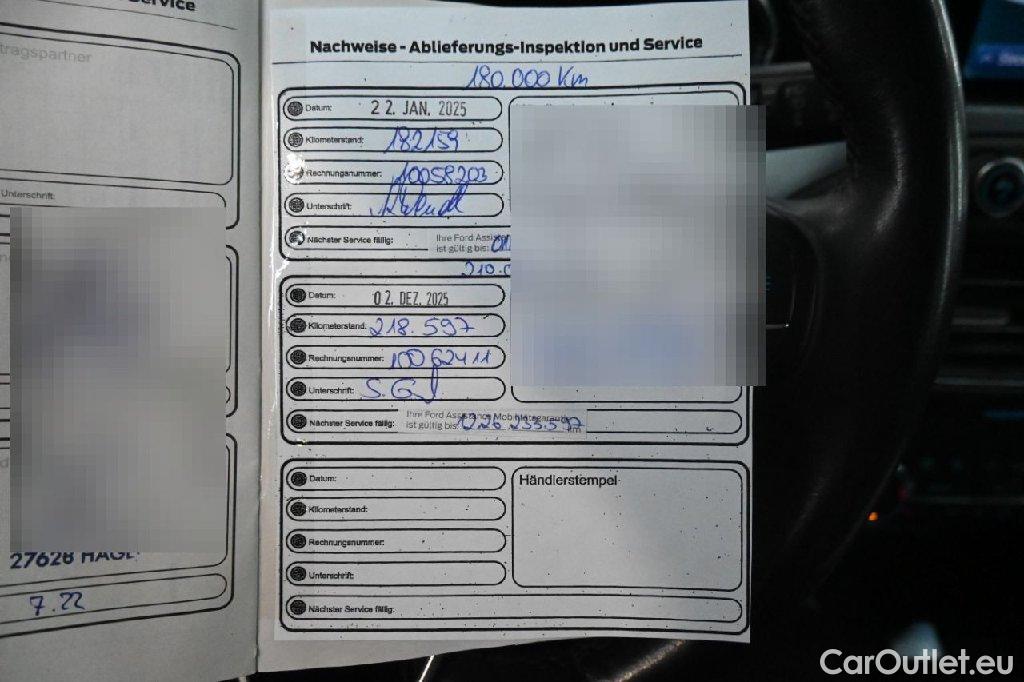 Service
tragspartner
Unterschrift:
27628 HAGE
7.22
Nachweise - Ablieferungs-Inspektion und Service
180.000 Km
Datum: 22. JAN. 2025
Kilometerstand: 182159
Rechnungsnummer: 10058203
Unterschrift:
Nächster Service fällig: Ihre Ford Assis
ist gültig bis:
210.0
Datum: 02. DEZ. 2025
Kilometerstand: 218.597
Rechnungsnummer: 10062411
Unterschrift: S.G
Nächster Service fällig: Ihre Ford Assistance Mobilitätsgarantie
ist gültig bis: 12.26 233.597 km
Datum:
Kilometerstand:
Rechnungsnummer:
Unterschrift:
Nächster Service fällig:
Händlerstempel
CarOutlet.eu